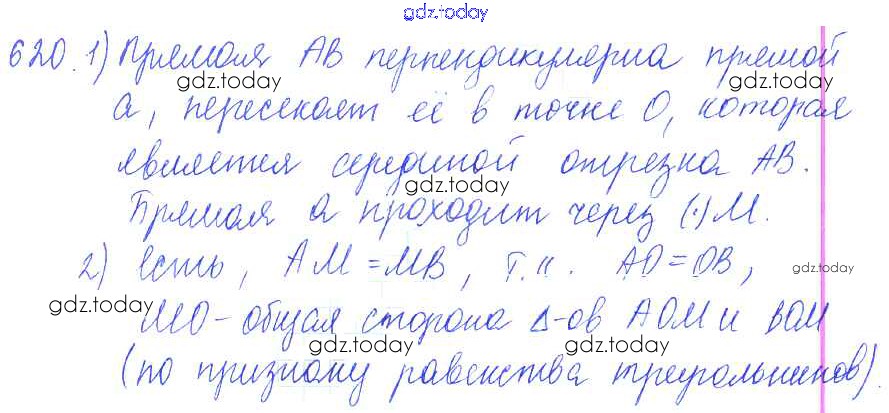 gdz.today
620. 1) Прямая АВ перпендикулярна прямой
gdz.today gdz.today
а, пересекает её в точке О, которая
является серединой отрезка АВ.
gdz.today
Прямая а проходит через (·) М.
2) Есть, АМ = МВ, т.к. АО = ОВ,
gdz.today
gdz.today
МО - общая сторона Δ-ов АОМ и ВОМ
gdz.today gdz.today
(по признаку равенства треугольников).